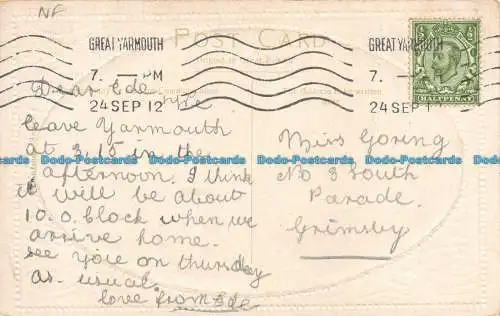 NF
POST CARD
GREAT YARMOUTH
7. PM
24 SEP 12
GREAT YARMOUTH
7.
24 SEP 1
HALFPENNY
Dear Ede
We
leave Yarmouth
at 3.15 in the
afternoon. I think
it will be about
10.0. Clock when we
arrive home.
see you on thursday
as usual.
love from Ede
Miss Goring
No 3 South
Parade.
Grimsby
Dodo-Postcards Dodo-Postcards Dodo-Postcards Dodo-Postcards